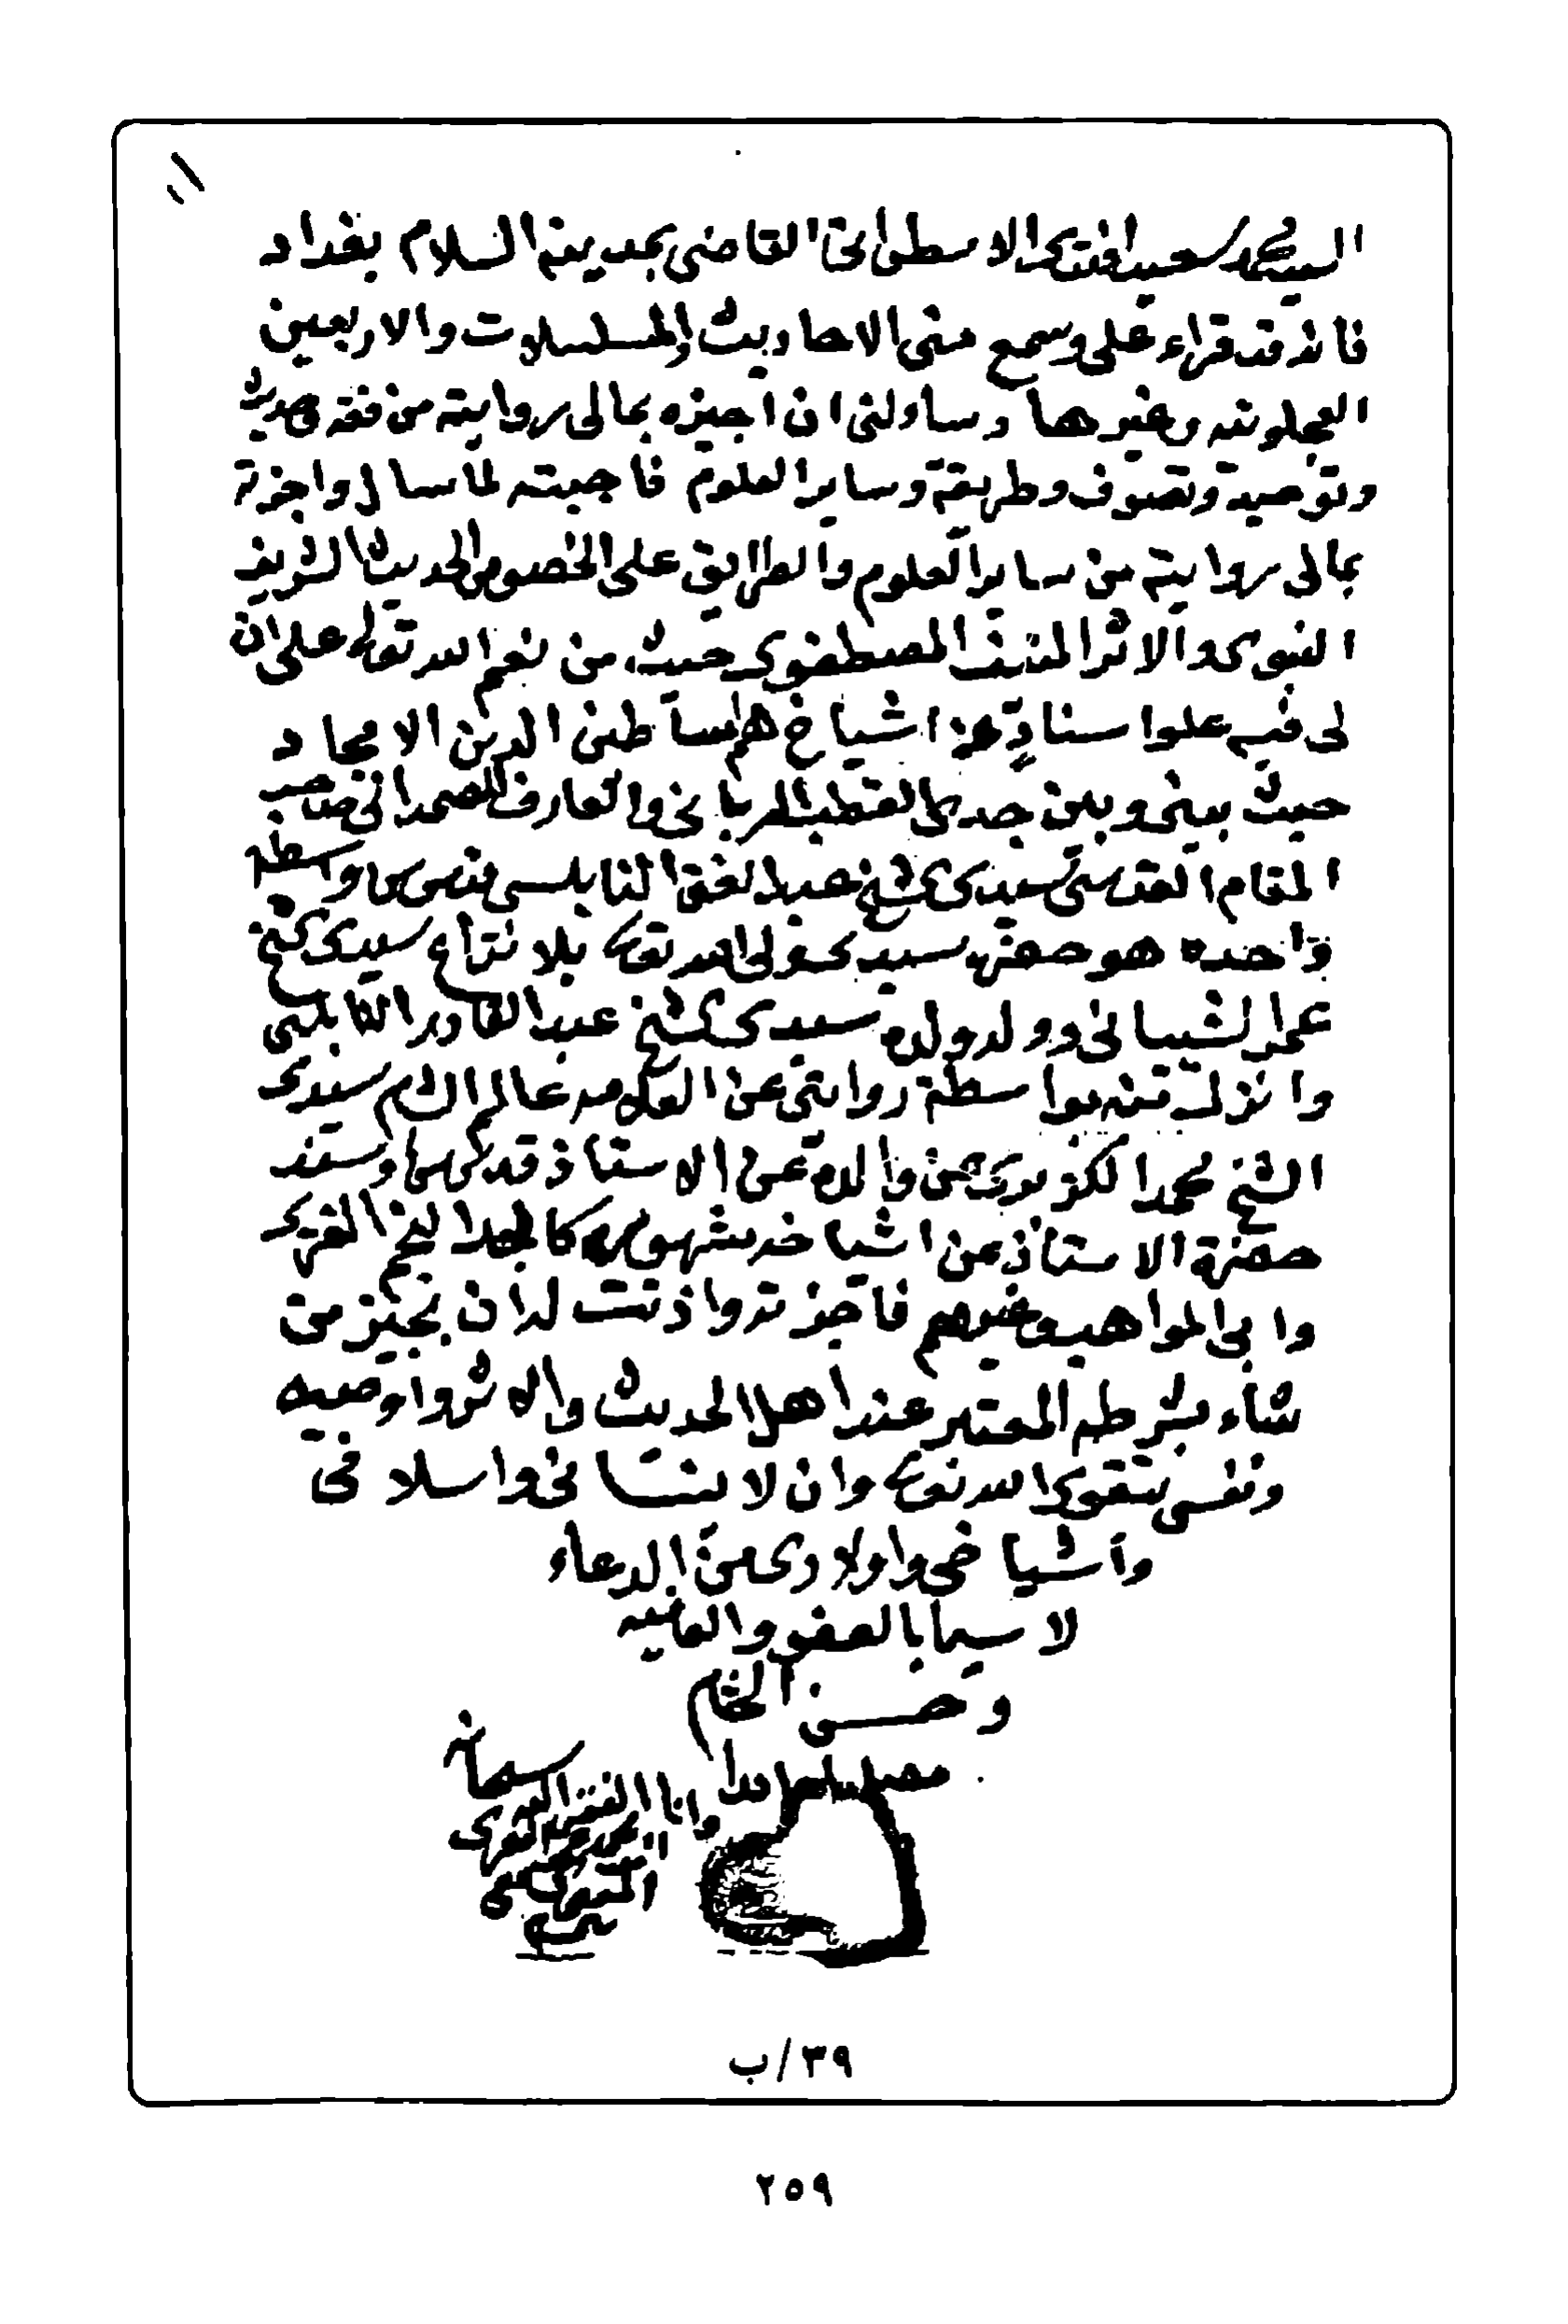 السيد محمد سعيد افندي الاسطواني القاضي بمدينة السلام بغداد
فانه قد قراء علي وسمع مني الاحاديث والمسلسلات والاربعين
العجلونية وغيرها وساولني ان اجيزه بمالي روايته من فقه وحديث
وتوحيد وتصوف وطريقة وساير العلوم فاجبته لما سال واجزته
بمالي روايته من ساير العلوم والطرايق على الخصوص الحديث الشريف
النبوي والاثر المنيف المصطفوي حيث من نعم الله تعالى علي ان
لي فيه علو اسناد عن اشياخ هم اساطين الدين الامجاد
حيث بيني وبين جدي القطب الرباني والعارف الصمداني صاحب
المقام القدسي سيدي الشيخ عبد الغني النابلسي قدس سره واسطه
واحده هو حضرة سيدي ولي الله تعالى بلا نزاع سيدي الشيخ
عمر الشيباني وولد ولده سيدي الشيخ عبد القادر النابلسي
وانزل منه بواسطة روايتي عن العلامه عالم الشام سيدي
الشيخ محمد الكزبري عن والده عن الاستاذ قدس سره وسند
حضرة الاستاذ عن اشياخه مشهور كالجد النجم الغزي
وابي المواهب وغيرهم فاجزته واذنت له ان يجيز من
شاء بشرطه المعتبر عند اهل الحديث والاثر واوصيه
ونفسي بتقوى الله تعالى وان لا ينساني واسلافي
واشياخي واولادي من الدعاء
لا سيما بالعفو والعافيه
وحسن الختام
وانا الفقير اليه سبحانه
٣٩/ب
٢٥٩